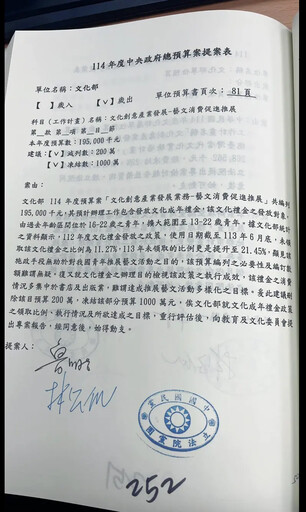 114 年度中央政府總預算案提案表
單位名稱：文化部 單位預算書頁次：81 頁
【 】歲入 【V】歲出
科目(工作計畫)名稱：文化創意產業發展-藝文消費促進推展
第__款 第__項 第__目__節
本年度預算數：195,000 千元
建議：【V】減列數：200 萬
【V】凍結數：1000 萬
案由：
文化部 114 年度預算案「文化創意產業發展業務-藝文消費促進推展」共編列
195,000 千元，其預計辦理工作包含發放文化成年禮金，該文化禮金之發放對象，
由過去年齡區間位於 16-22 歲之青年，擴大範圍至 13-22 歲青年。據文化部統計
之資料顯示，112 年度文化禮金發放之政策，使用日期截至 113 年 6 月底，未領
取該文化禮金之比例為 11.27%，113 年未領取的比例更是提升至 21.45%，顯見該
施政手段無助於對我國青年推展藝文活動之目的，該預算編列之必要性及編訂數
額難謂無疑。復又就文化禮金之辦理目的檢視該政策之執行成效，該禮金之消費
情況多集中於書店及出版業，難謂達成推展藝文活動多樣化之目標。爰此建議刪
除該項目預算 200 萬，凍結部分預算 1000 萬元，俟文化部就文化成年禮金政策
之領取比例、執行情況及所欲達成之目標，重行評估後，向教育及文化委員會提
出專案報告，經同意後，始得動支。
提案人：
中國國民黨
立法院黨團
252